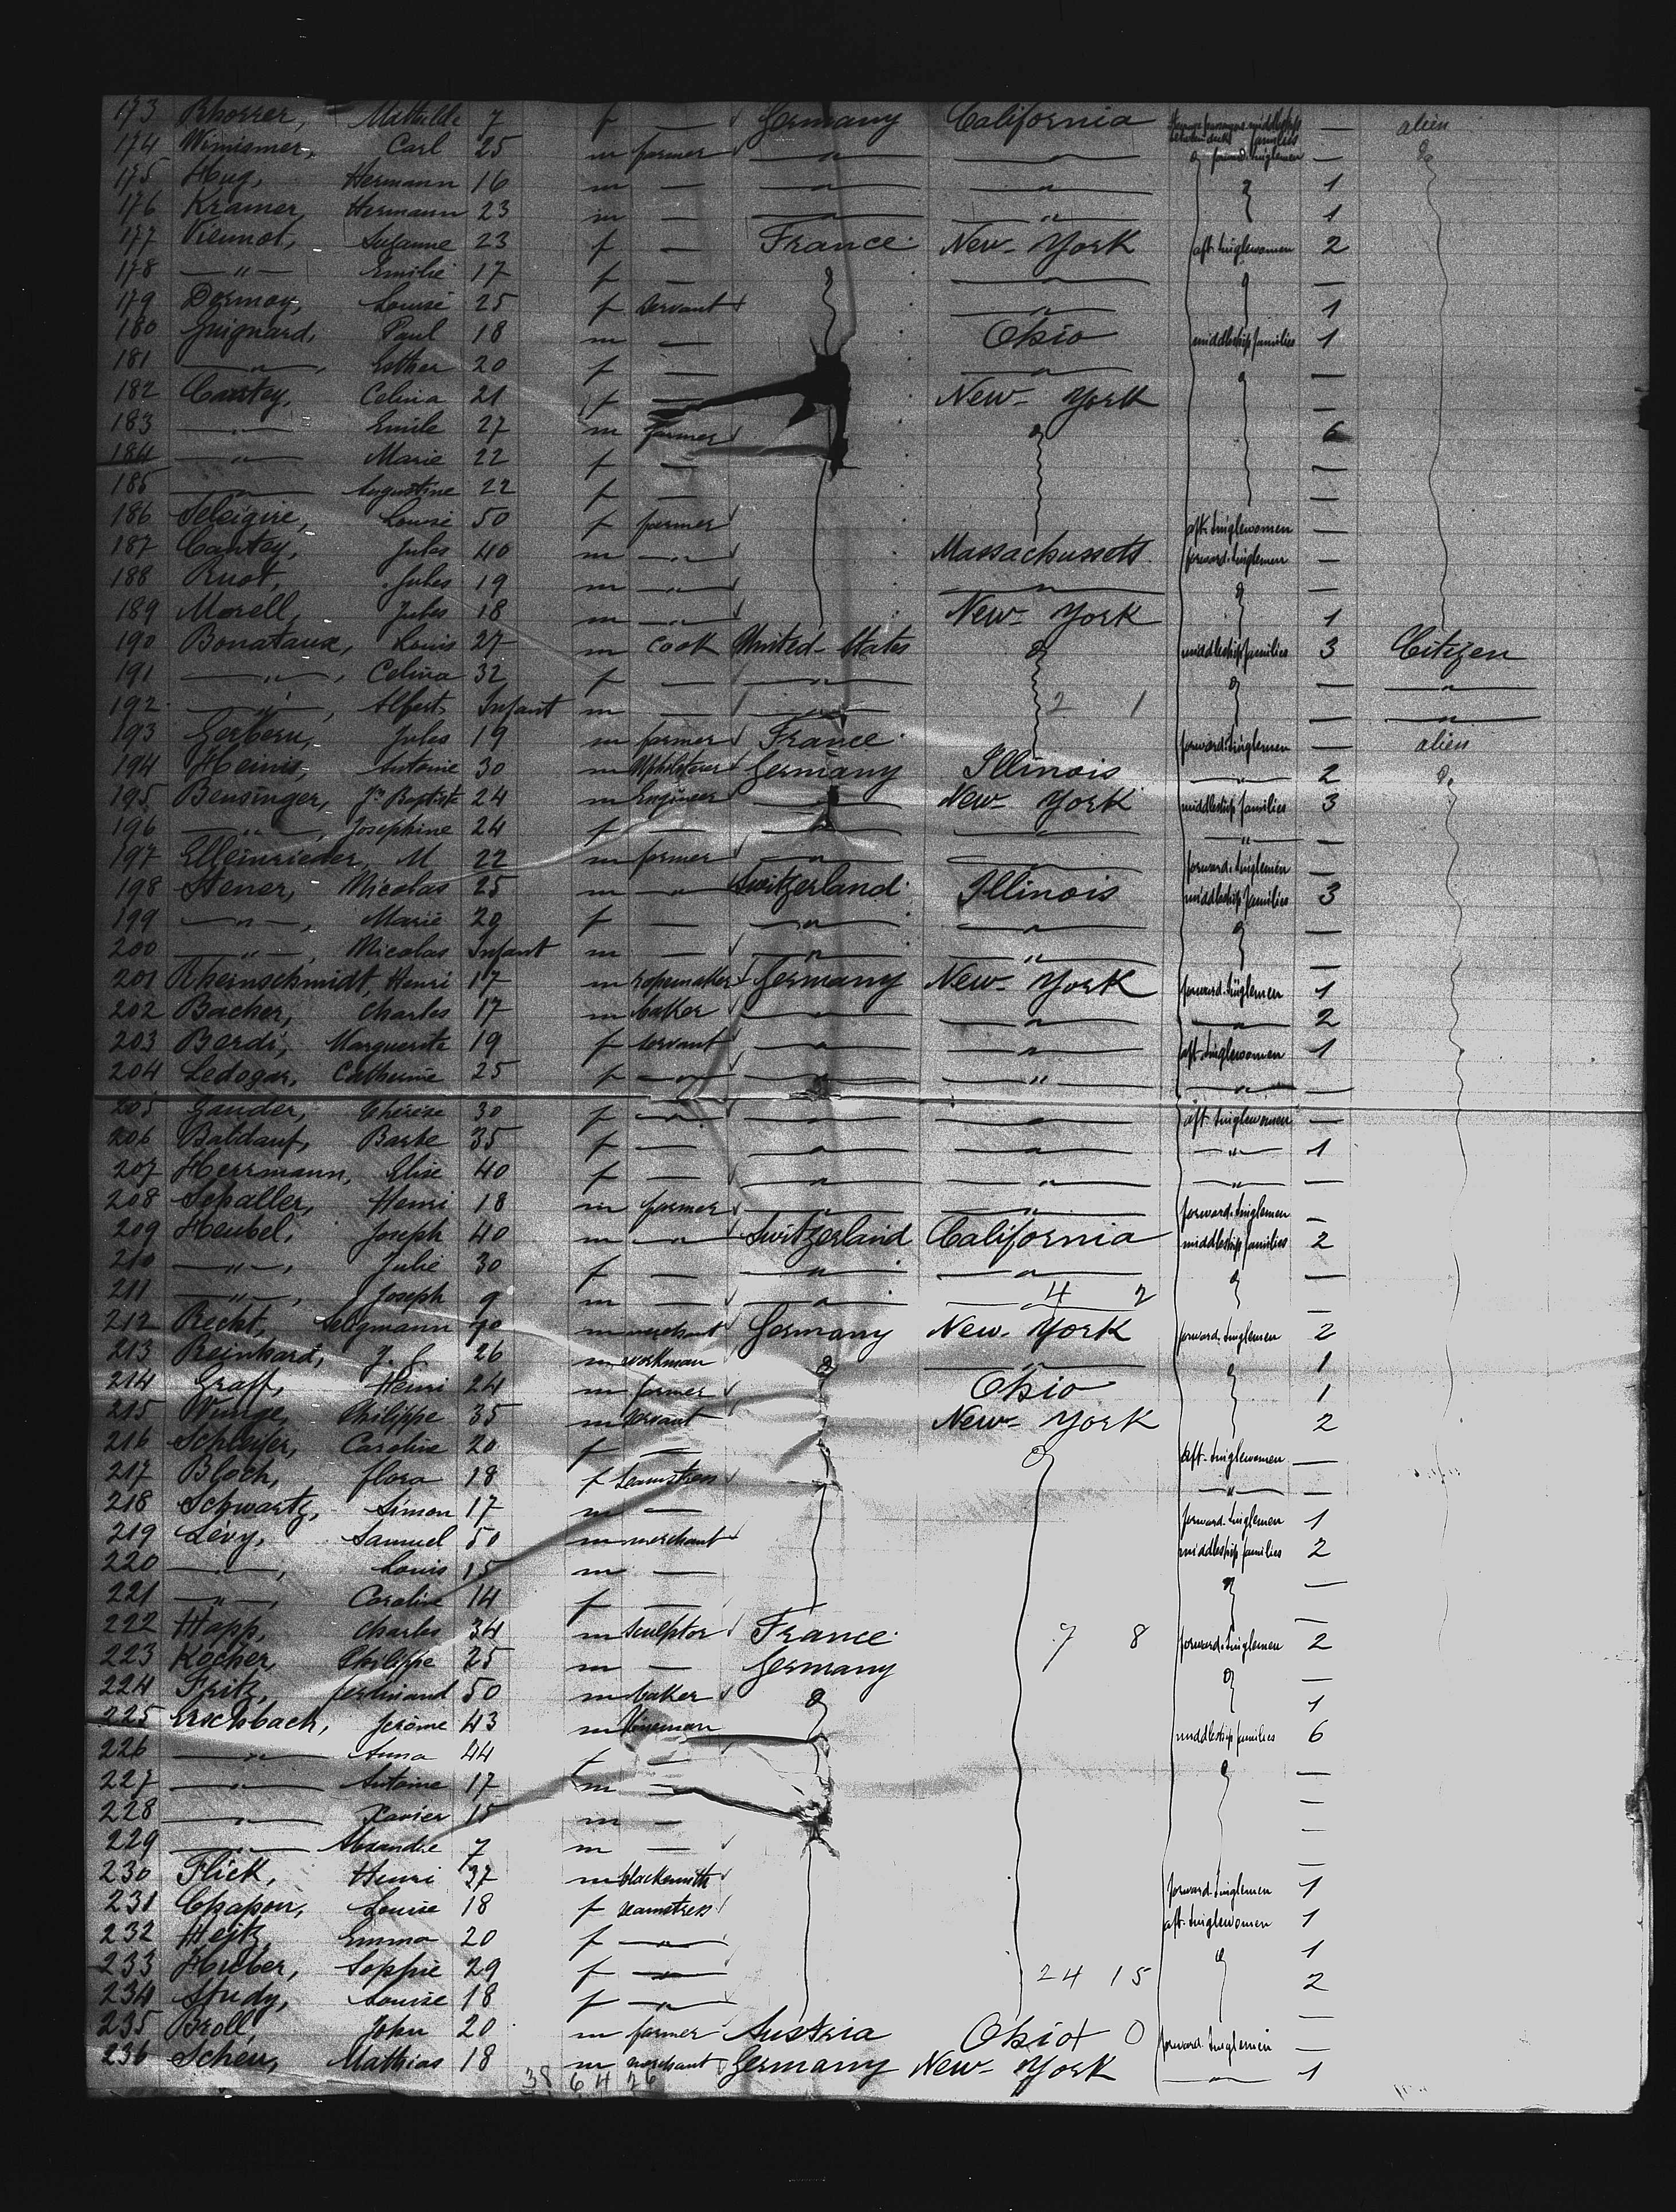 173 Rhorrer, Mathilde 7 f — Germany California — alien
174 Winismer, Carl 25 m farmer — " — — " — forward. singlemen — do
175 Hug, Hermann 16 m — — " — — " — 1
176 Kramer, Hermann 23 m — — " — — " — 1
177 Viennot, Suzanne 23 f — France New-York aft. singlewomen 2
178 — " — Emilie 17 f — — " — —
179 Dormoy, Louise 25 f servant — " — 1
180 Guignard, Paul 18 m — Ohio middleship families 1
181 — " —, Esther 20 f — — " — —
182 Cantey, Celina 21 f — New-York —
183 — " — Emile 27 m farmer do 6
184 — " — Marie 22 f — —
185 — " — Augustine 22 f — —
186 Seleigire, Louise 50 f farmer aft. singlewomen —
187 Cantey, Jules 40 m — " — Massachussets forward. singlemen —
188 Ruot, Jules 19 m — " — — " — do —
189 Morell, Jules 18 m — " — New-York 1
190 Bonataux, Louis 27 m cook United-States do middleship families 3 Citizen
191 — " —, Celina 32 f — — " — do — — " —
192 — " —, Albert Infant m — — " — 2 1 — — " —
193 Gerberu, Jules 19 m farmer France forward. singlemen — alien
194 Hemis, Antoine 30 m Upholsterer Germany Illinois — " — 2 do
195 Bensinger, Jn Baptiste 24 m Engineer — " — New-York middleship families 3
196 — " —, Josephine 24 f — — " — — " — — " — —
197 Elleinrieder, M 22 m farmer — " — — " — forward. singlemen —
198 Stener, Nicolas 25 m — " — Switzerland Illinois middleship families 3
199 — " —, Marie 20 f — — " — — " — do —
200 — " —, Nicolas Infant m — — " — — " — —
201 Rheinschmidt, Henri 17 m ropemaker Germany New-York forward. singlemen 1
202 Bacher, Charles 17 m baker — " — — " — — " — 2
203 Berdi, Marguerite 19 f servant — " — — " — aft. singlewomen 1
204 Ledogar, Catherine 25 f — " — — " — — " — — " — —
205 Gander, Thérèse 30 f — " — — " — — " — aft. singlewomen —
206 Baldauf, Barbe 35 f — — " — — " — — " — 1
207 Herrmann, Elise 40 f — — " — — " — — " — —
208 Schaller, Henri 18 m farmer — " — — " — forward. singlemen —
209 Heubel, Joseph 40 m — " — Switzerland California middleship families 2
210 — " —, Julie 30 f — — " — — " — do —
211 — " —, Joseph 9 m — — " — — " — 4 2 —
212 Recht, Seligmann m merchant Germany New-York forward. singlemen 2
213 Reinhard, 26 m workman do — " — do 1
214 Graff, Henri 24 m farmer Ohio 1
215 Winge, Philippe 35 m servant New-York 2
216 Schleifer, Caroline 20 f — do aft. singlewomen —
217 Bloch, flora 18 f seamstress — " — —
218 Schwartz, Simon 17 m — forward. singlemen 1
219 Lévy, Samuel 50 m merchant middleship families 2
220 — " —, Louis 15 m — do —
221 — " —, Caroline 14 f — —
222 Happ, Charles 34 m sculptor France 7 8 forward. singlemen 2
223 Kocher, Philippe 25 m — Germany do —
224 Fritz, ferdinand 50 m baker do 1
225 Erschbach, Jerôme 43 m Vineman middleship families 6
226 — " — Anna 44 f — do —
227 — " — Antoine 17 m — —
228 — " — Xavier 15 m — —
229 — " — Alexandre 7 m — —
230 Flick, Henri 37 m blacksmith forward. singlemen 1
231 Chapon, Louise 18 f seamstress aft. singlewomen 1
232 Heitz, Emma 20 f — " — do 1
233 Huber, Sophie 29 f — " — 24 15 2
234 Study, Louise 18 f — " — —
235 Broll, John 20 m farmer Austria Ohio 0 forward. singlemen —
236 Scheu, Mathias 18 m merchant Germany New-York — " — 1
38 6 4 26